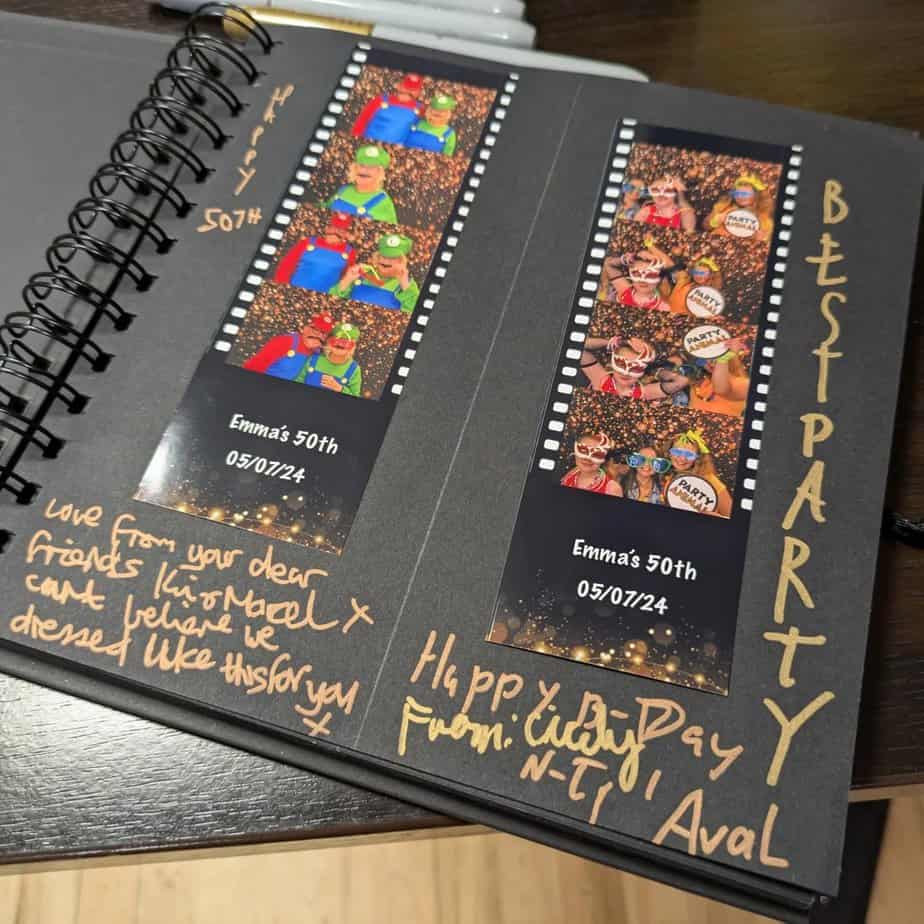 HAPPY
50TH
Emma's 50th
05/07/24
Love from your dear
friends Kir & Marcel X
can't believe we
dressed like this for you
X
PARTY
ANIMAL
PARTY
ANIMAL
PARTY
ANIMAL
PARTY
ANIMAL
Emma's 50th
05/07/24
BEST PARTY
Happy B-Day
From:
Aval